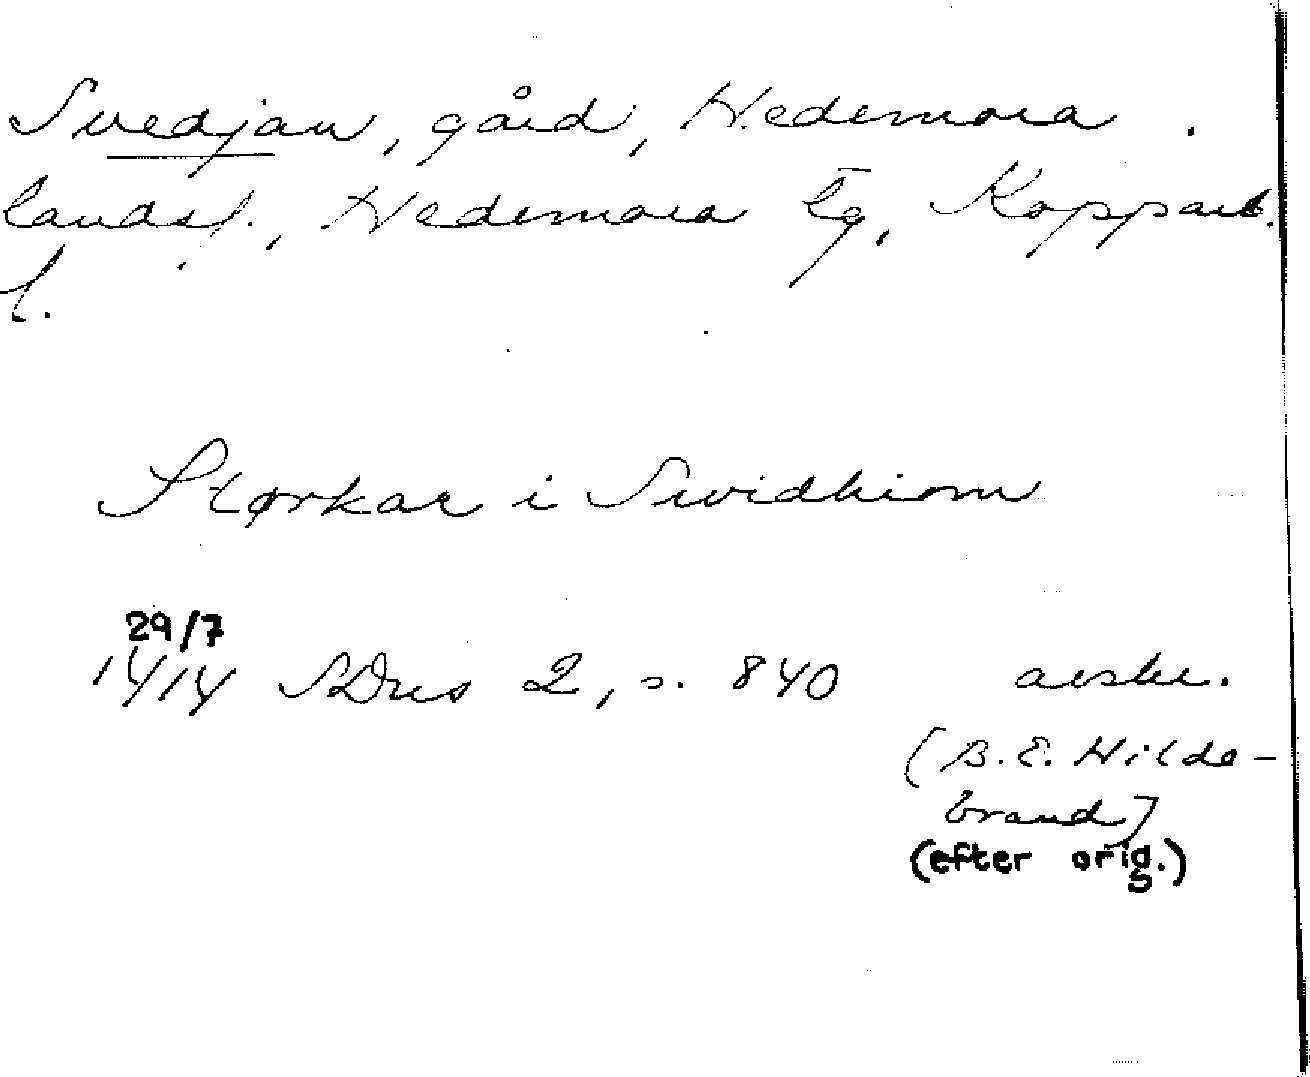 Svedjan, gård, Hedemora
landsf., Hedemora tg, Kopparb.
l.
Størkar i Swidhiom
29/7
1414 SDns 2, s. 840 avskr.
[B.E. Hilde-
brand]
(efter orig.)